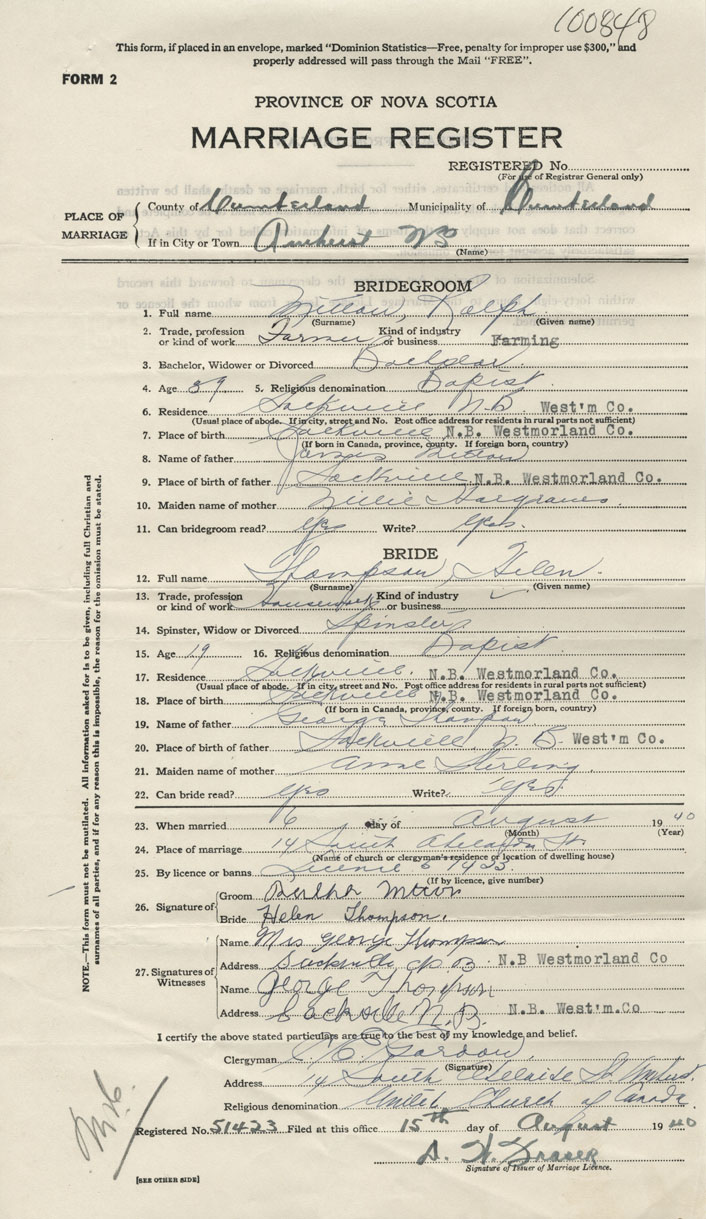 100848
This form, if placed in an envelope, marked "Dominion Statistics—Free, penalty for improper use $300," and
properly addressed will pass through the Mail "FREE".
FORM 2
PROVINCE OF NOVA SCOTIA
MARRIAGE REGISTER
REGISTERED No.
(For use of Registrar General only)
PLACE OF MARRIAGE
County of Cumberland Municipality of Cumberland
If in City or Town Amherst NS
(Name)
BRIDEGROOM
1. Full name Mitton, Ralph
(Surname) (Given name)
2. Trade, profession or kind of work Farmer Kind of industry or business Farming
3. Bachelor, Widower or Divorced Bachelor
4. Age 39 5. Religious denomination Bapist
6. Residence Sackville N.B. West'm Co.
(Usual place of abode. If in city, street and No. Post office address for residents in rural parts not sufficient)
7. Place of birth Sackville N.B. Westmorland Co.
(If born in Canada, province, county. If foreign born, country)
8. Name of father James Mitton
9. Place of birth of father Sackville N.B. Westmorland Co.
10. Maiden name of mother Hargraves
11. Can bridegroom read? yes Write? yes
BRIDE
12. Full name Thompson, Helen
(Surname) (Given name)
13. Trade, profession or kind of work housework Kind of industry or business
14. Spinster, Widow or Divorced Spinster
15. Age 19 16. Religious denomination Bapist
17. Residence Sackville. N.B. Westmorland Co.
(Usual place of abode. If in city, street and No. Post office address for residents in rural parts not sufficient)
18. Place of birth Sackville N.B. Westmorland Co.
(If born in Canada, province, county. If foreign born, country)
19. Name of father George
20. Place of birth of father Sackville N.B. West'm Co.
21. Maiden name of mother Anne Sterling
22. Can bride read? yes Write? yes
23. When married 6 day of August 1940
(Month) (Year)
24. Place of marriage 14 South St.
(Name of church or clergyman's residence or location of dwelling house)
25. By licence or banns Licence
(If by licence, give number)
26. Signature of
Groom
Bride Helen Thompson.
27. Signatures of Witnesses
Name Mrs George Thompson
Address Sackville N B N.B Westmorland Co
Name George Thompson
Address Sackville N.B. N.B. West'm.Co
I certify the above stated particulars are true to the best of my knowledge and belief.
Clergyman Gordon
(Signature)
Address 14 South Adelaide St Amherst.
Religious denomination United Church of Canada
Registered No. 51423 Filed at this office 15th day of August 1940
Fraser
Signature of Issuer of Marriage Licence.
[SEE OTHER SIDE]
NOTE.—This form must not be mutilated. All information asked for is to be given, including full Christian and
surnames of all parties, and if for any reason this is impossible, the reason for the omission must be stated.